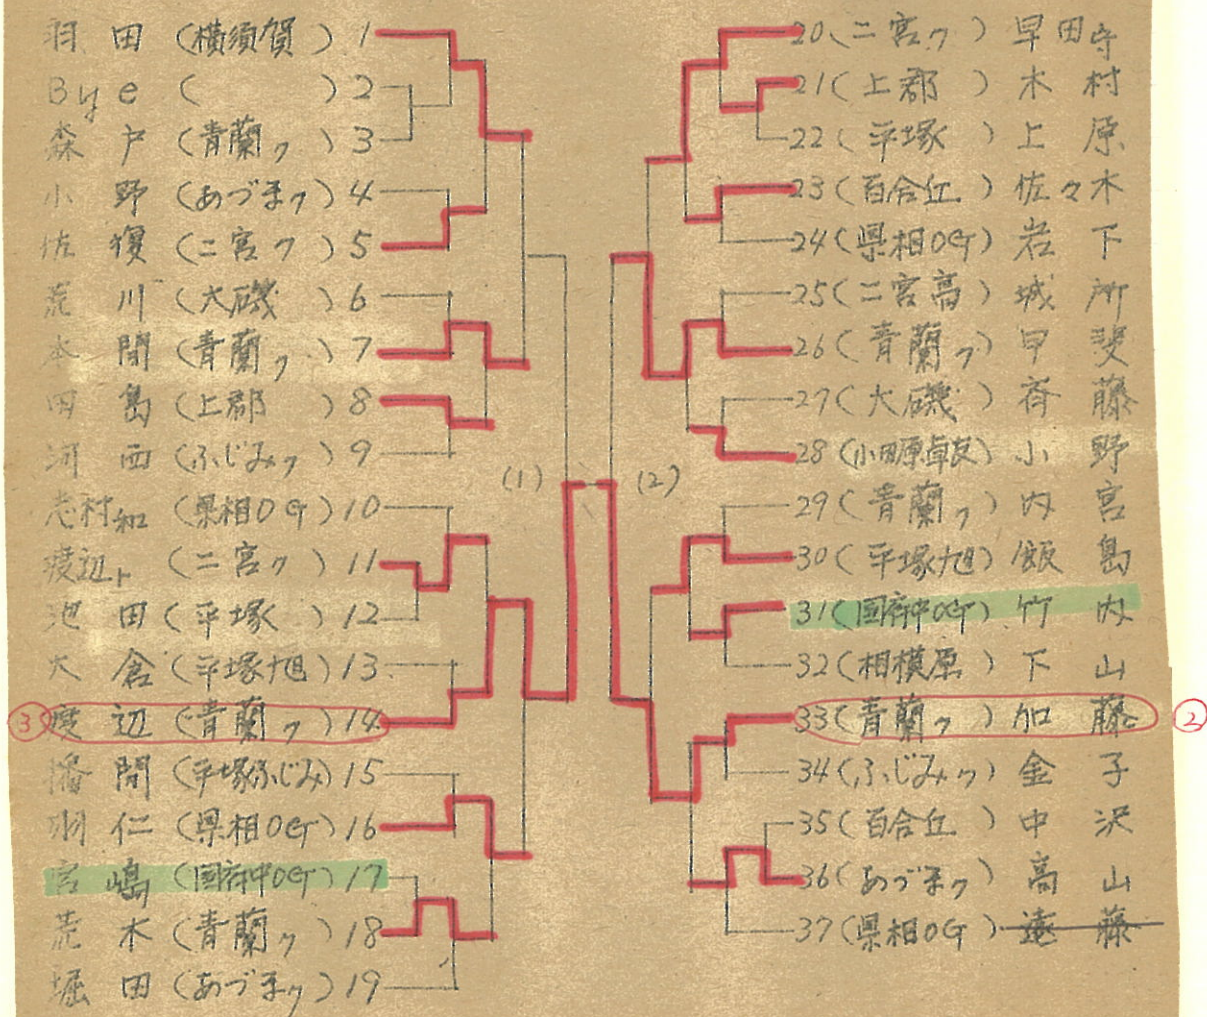 羽田(横須賀)1
Bye( )2
森戸(青蘭ク)3
小野(あづまク)4
佐復(二宮ク)5
荒川(大磯)6
本間(青蘭ク)7
田島(上郡)8
河西(ふじみク)9
志村和(県相OG)10
渡辺ト(二宮ク)11
池田(平塚)12
大倉(平塚旭)13
③渡辺(青蘭ク)14
播間(平塚ふじみ)15
羽仁(県相OG)16
宮嶋(国府中OG)17
荒木(青蘭ク)18
堀田(あづまク)19
(1) (2)
20(二宮ク)早田守
21(上郡)木村
22(平塚)上原
23(百合丘)佐々木
24(県相OG)岩下
25(二宮高)城所
26(青蘭ク)甲斐
27(大磯)斉藤
28(小田原卓友)小野
29(青蘭ク)内宮
30(平塚旭)飯島
31(国府中OG)竹内
32(相模原)下山
33(青蘭ク)加藤②
34(ふじみク)金子
35(百合丘)中沢
36(あづまク)高山
37(県相OG)遠藤